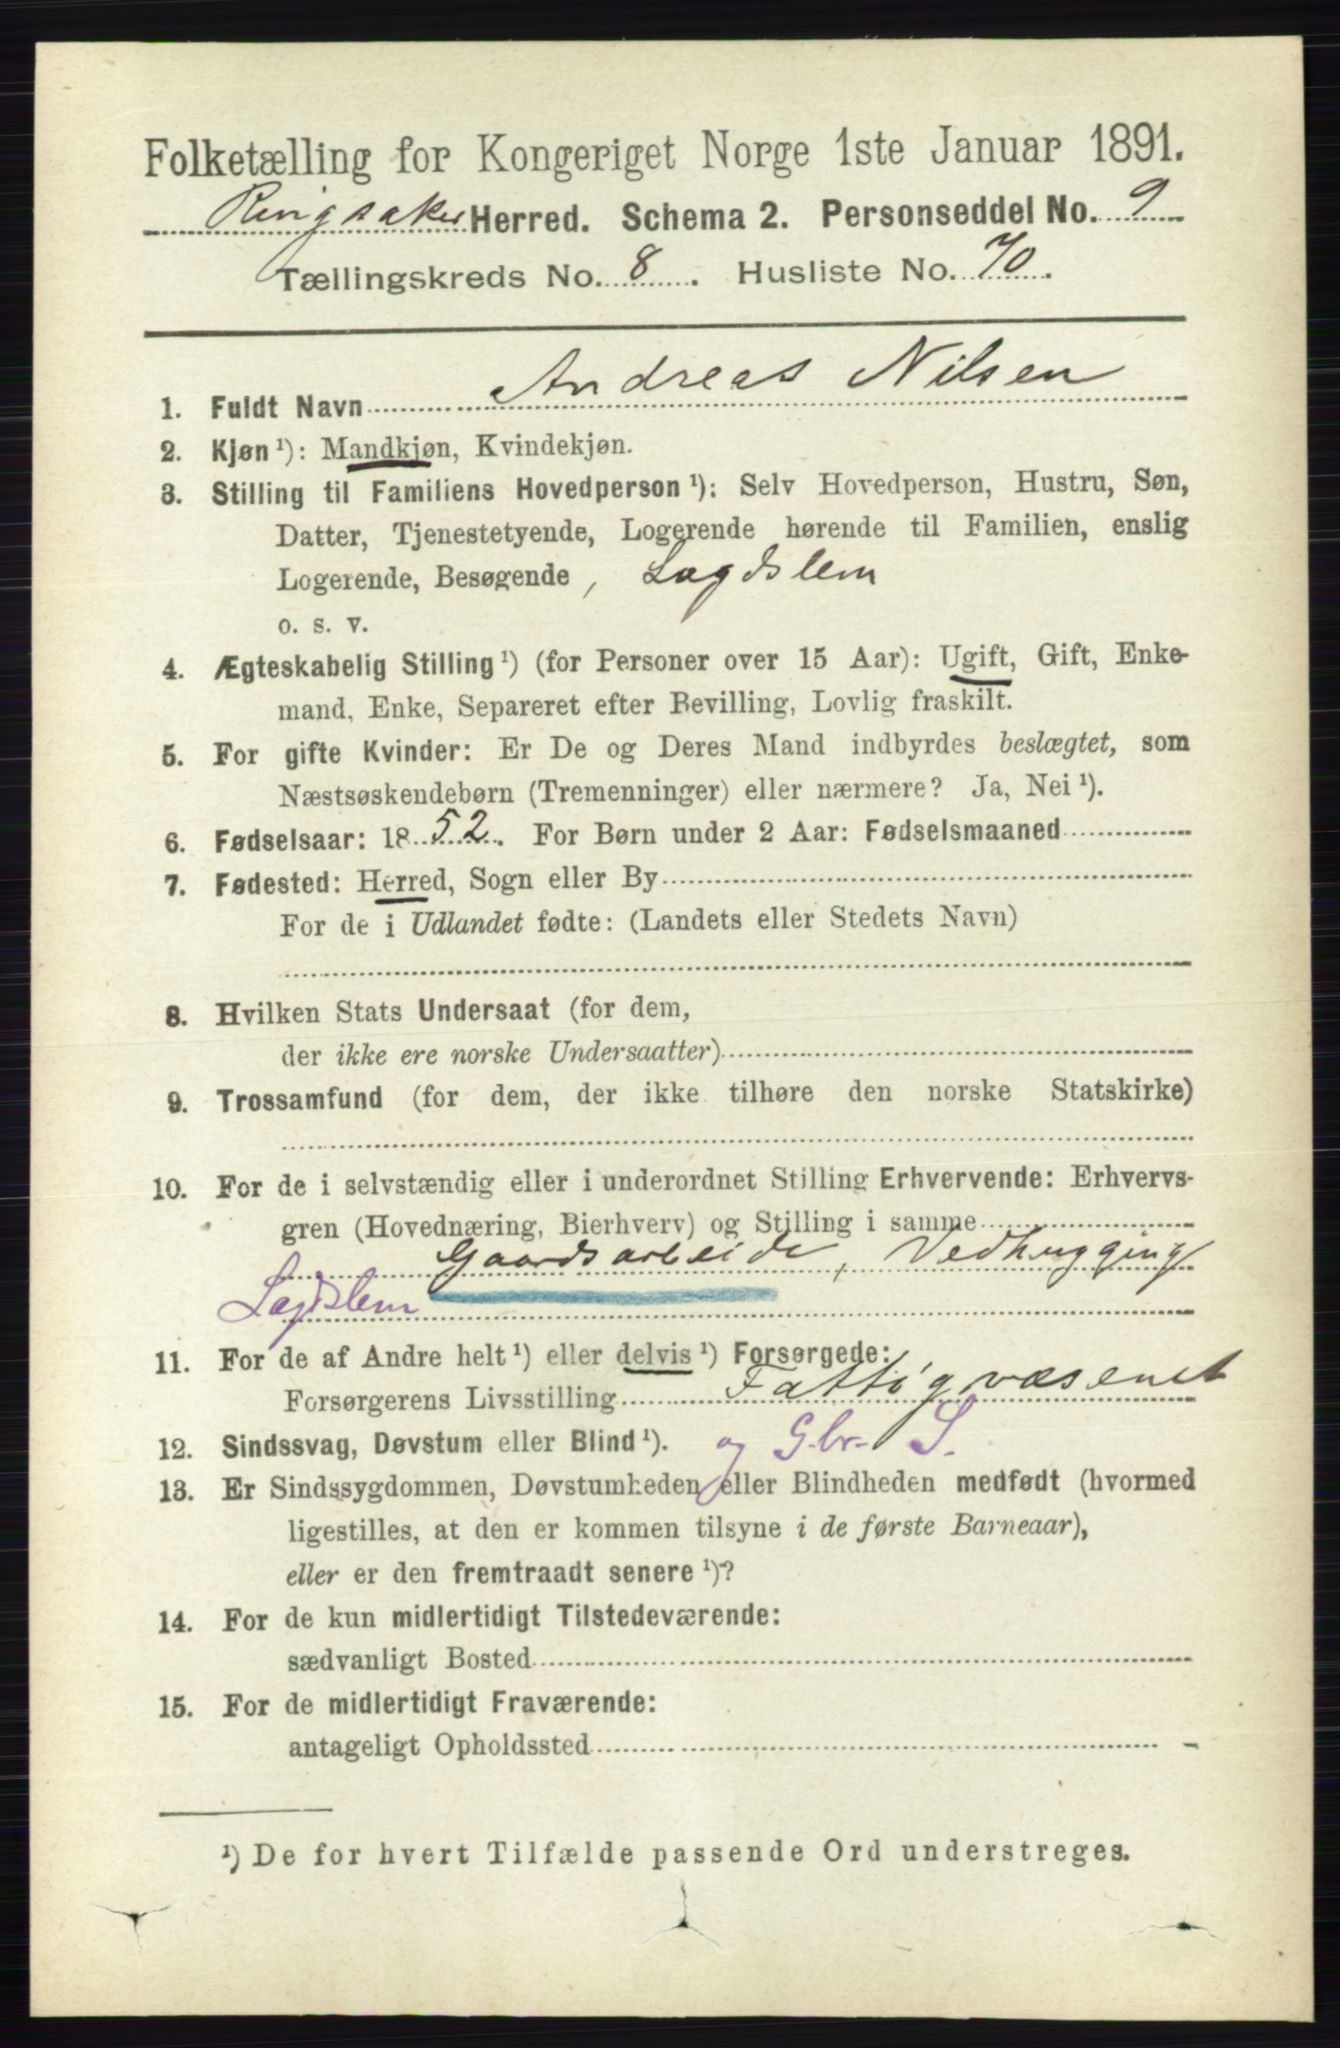 Folketælling for Kongeriget Norge 1ste Januar 1891.
Ringsaker Herred. Schema 2. Personseddel No. 9
Tællingskreds No. 8. Husliste No. 70.
1. Fuldt Navn Andreas Nilsen
2. Kjøn¹): Mandkjøn, Kvindekjøn.
3. Stilling til Familiens Hovedperson¹): Selv Hovedperson, Hustru, Søn,
Datter, Tjenestetyende, Logerende hørende til Familien, enslig
Logerende, Besøgende, Lagdslem
o. s. v.
4. Ægteskabelig Stilling¹) (for Personer over 15 Aar): Ugift, Gift, Enke-
mand, Enke, Separeret efter Bevilling, Lovlig fraskilt.
5. For gifte Kvinder: Er De og Deres Mand indbyrdes beslægtet, som
Næstsøskendebørn (Tremenninger) eller nærmere? Ja, Nei¹).
6. Fødselsaar: 1852. For Børn under 2 Aar: Fødselsmaaned
7. Fødested: Herred, Sogn eller By
For de i Udlandet fødte: (Landets eller Stedets Navn)
8. Hvilken Stats Undersaat (for dem,
der ikke ere norske Undersaatter)
9. Trossamfund (for dem, der ikke tilhøre den norske Statskirke)
10. For de i selvstændig eller i underordnet Stilling Erhvervende: Erhvervs-
gren (Hovednæring, Bierhverv) og Stilling i samme
Gaardsarbeide, Vedhugging
Lagdslem
11. For de af Andre helt¹) eller delvis¹) Forsørgede:
Forsørgerens Livsstilling Fattigvæsenet
12. Sindssvag, Døvstum eller Blind¹). og Gbr. S.
13. Er Sindssygdommen, Døvstumheden eller Blindheden medfødt (hvormed
ligestilles, at den er kommen tilsyne i de første Barneaar),
eller er den fremtraadt senere¹)?
14. For de kun midlertidigt Tilstedeværende:
sædvanligt Bosted
15. For de midlertidigt Fraværende:
antageligt Opholdssted
¹) De for hvert Tilfælde passende Ord understreges.